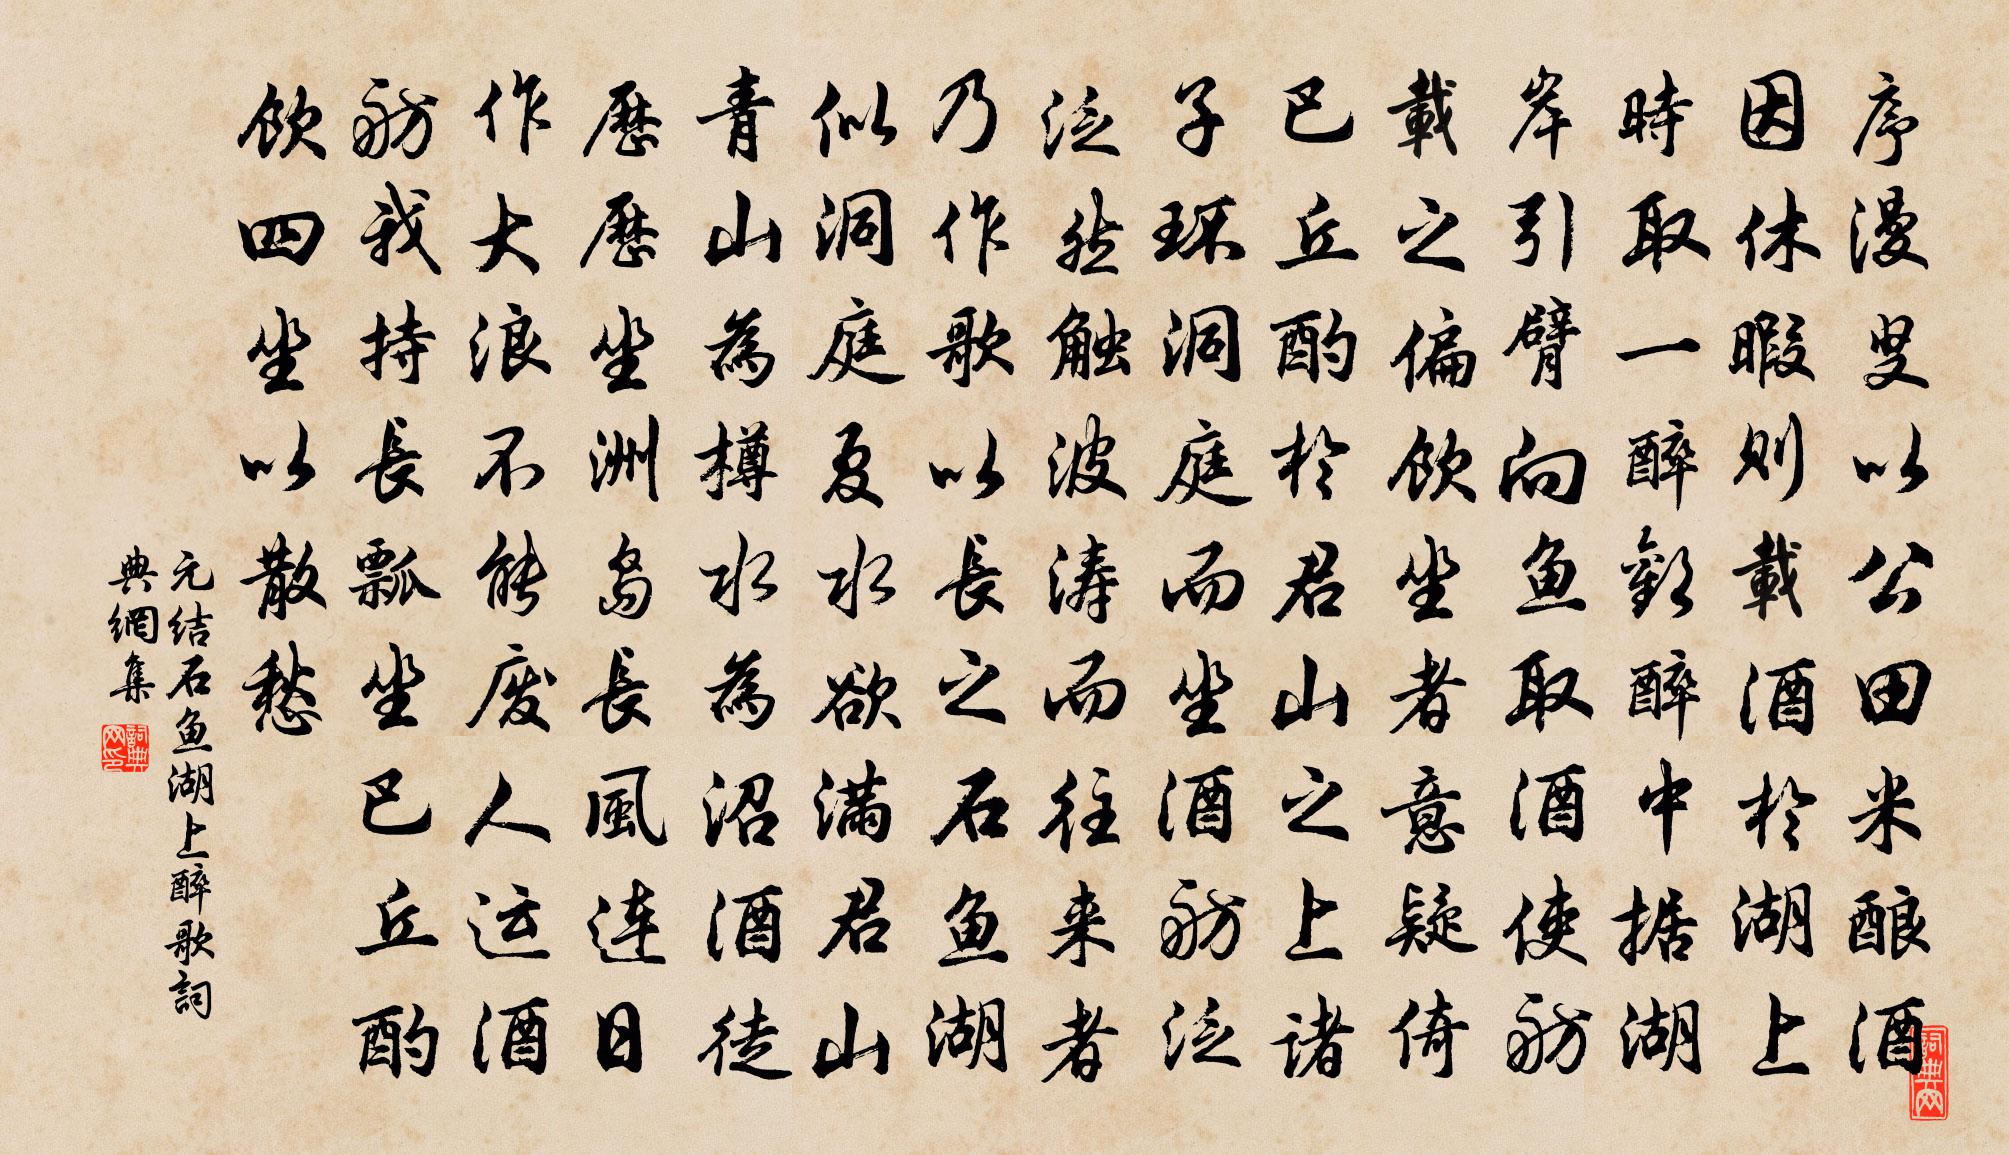 序漫叟以公田米酿酒
因休暇则載酒於湖上
時取一醉歡醉中据湖
岸引臂向鱼取酒使舫
載之偏饮坐者意疑倚
巴丘酌於君山之上诸
子环洞庭而坐酒舫泛
泛然触波涛而往来者
乃作歌以長之石鱼湖
似洞庭夏水欲满君山
青山為樽水為沼酒徒
歷歷坐洲岛長風连日
作大浪不能废人运酒
舫我持長瓢坐巴丘酌
饮四坐以散愁
元结石鱼湖上醉歌詞
典網集
詞典网印
詞典网